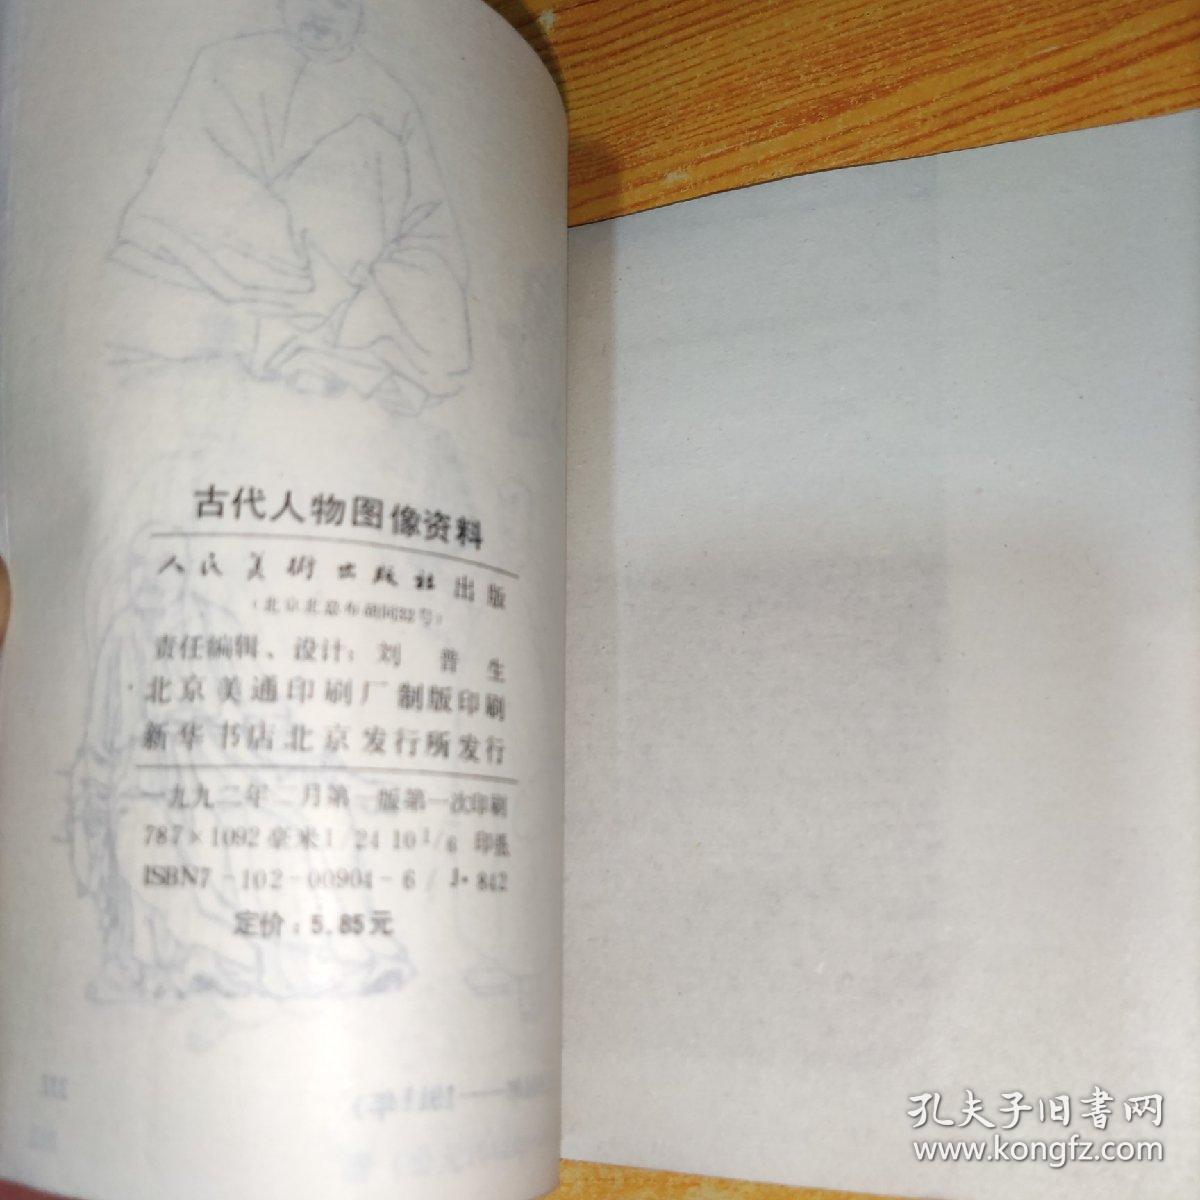 古代人物图像资料
人民美術出版社出版
（北京北总布胡同32号）
责任编辑、设计：刘普生
北京美通印刷厂制版印刷
新华书店北京发行所发行
一九九二年二月第一版第一次印刷
787×1092毫米1/24 10 1/6 印张
ISBN7-102-00904-6/J·842
定价：5.85元
1911年）
孔夫子旧书网
www.kongfz.com